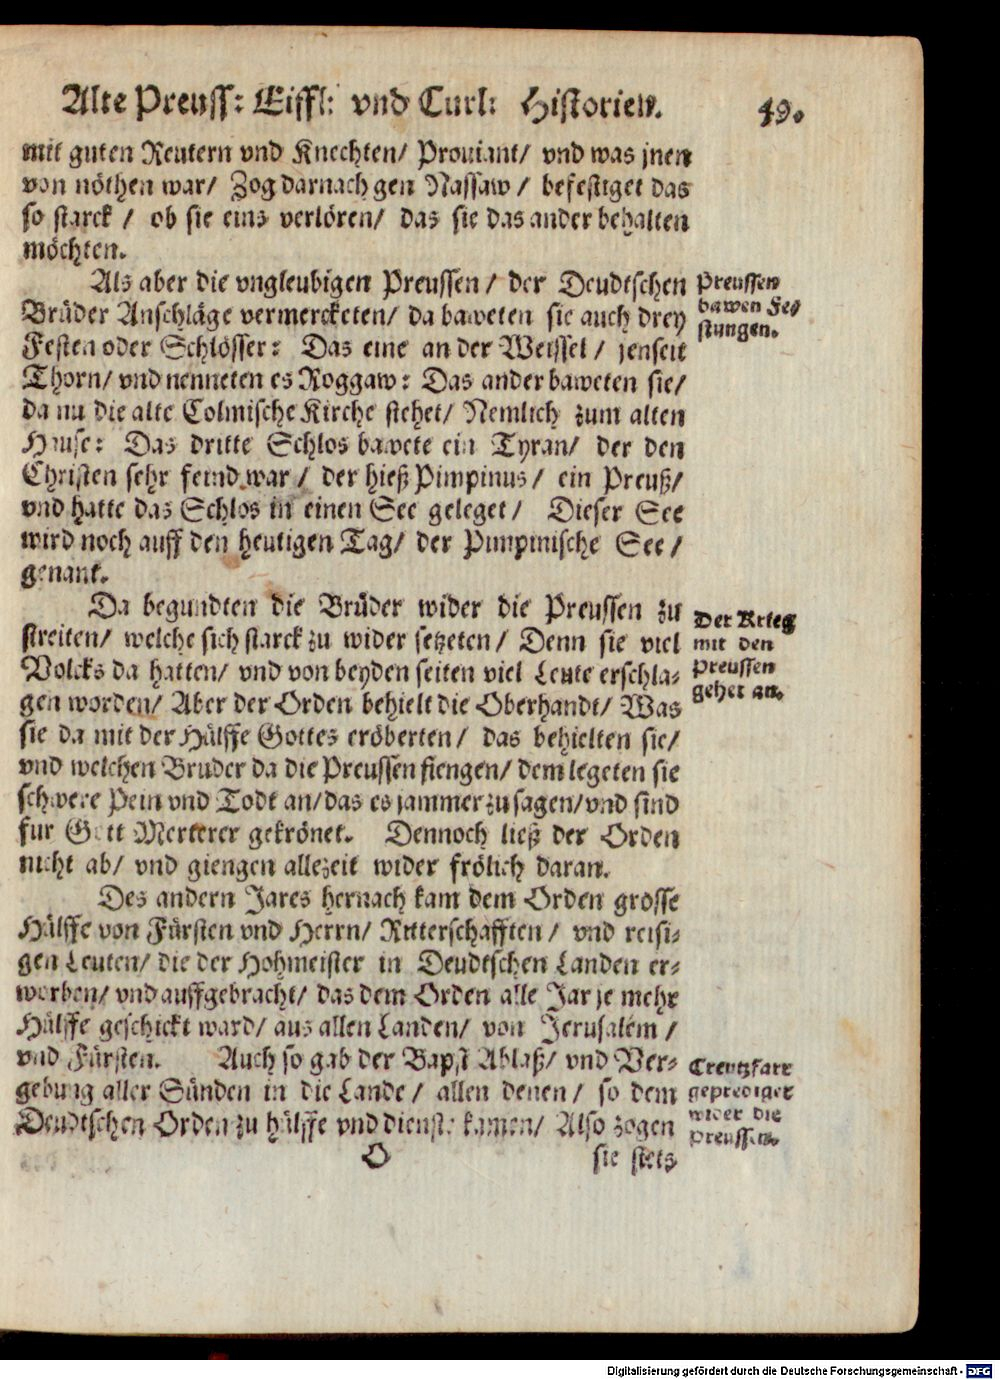 Alte Preuss: Eiffl: vnd Curl: Historien. 49.
mit guten Reutern vnd Knechten/ Prouiant/ vnd was jnen
von nöthen war/ Zog darnach gen Nassaw / befestiget das
so starck / ob sie eins verlören/ das sie das ander behalten
möchten.
Als aber die vngleubigen Preussen / der Deudtschen
Brüder Anschläge vermercketen/ da baweten sie auch drey
Festen oder Schlösser: Das eine an der Weissel / jenseit
Thorn/ vnd nenneten es Roggaw: Das ander baweten sie/
da nu die alte Colmische Kirche stehet/ Nemlich zum alten
Hause: Das dritte Schlos bawete ein Tyran/ der den
Christen sehr feind war / der hieß Pimpinus/ ein Preuß/
vnd hatte das Schlos in einen See geleget / Dieser See
wird noch auff den heutigen Tag/ der Pimpinische See /
genant.
Preussen
bawen Fes-
stungen.
Da begundten die Brüder wider die Preussen zu
streiten/ welche sich starck zu wider setzeten/ Denn sie viel
Volcks da hatten/ vnd von beyden seiten viel Leute erschla-
gen worden/ Aber der Orden behielt die Oberhandt/ Was
sie da mit der Hülffe Gottes eröberten/ das behielten sie/
vnd welchen Bruder da die Preussen fiengen/ dem legeten sie
schwere Pein vnd Todt an/ das es jammer zu sagen/ vnd sind
fur Gott Merterer gekrönet. Dennoch ließ der Orden
nicht ab/ vnd giengen allezeit wider frölich daran.
Der Krieg
mit den
Preussen
gehet an.
Des andern Jares hernach kam dem Orden grosse
Hülffe von Fürsten vnd Herrn/ Ritterschafften / vnd reisi-
gen Leuten/ die der Hohmeister in Deudtschen Landen er-
worben/ vnd auffgebracht/ das dem Orden alle Jar je mehr
Hülffe geschickt ward/ aus allen Landen/ von Jerusalem /
vnd Fürsten. Auch so gab der Bapst Ablaß/ vnd Ver-
gebung aller Sünden in die Lande / allen denen / so dem
Deudtschen Orden zu hülffe vnd dienste kamen/ Also zogen
Creutzfart
geprediget
wider die
Preussen.
O sie stets
Digitalisierung gefördert durch die Deutsche Forschungsgemeinschaft - DFG